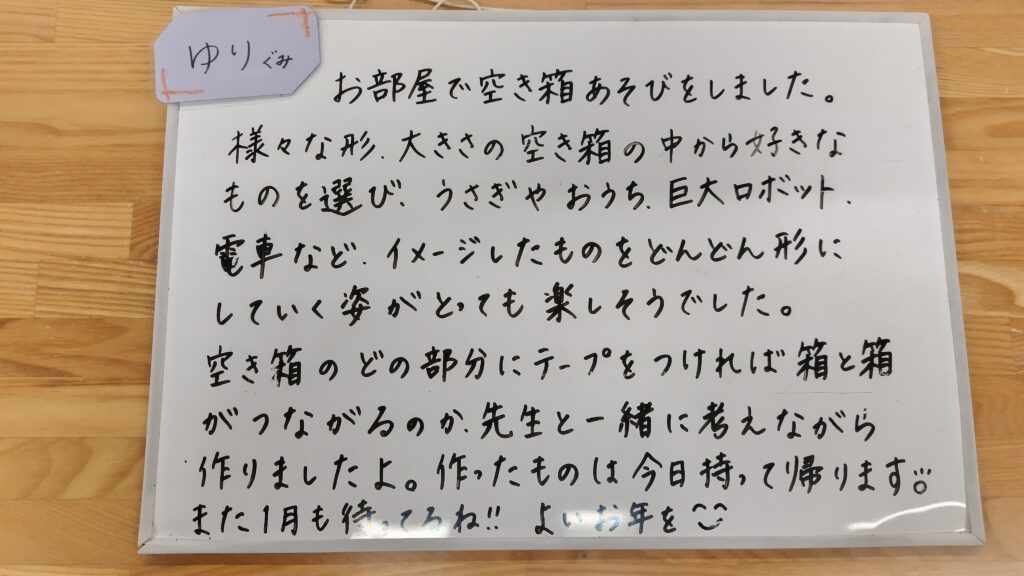 ゆりぐみ
お部屋で空き箱あそびをしました。
様々な形、大きさの空き箱の中から好きな
ものを選び、うさぎやおうち、巨大ロボット、
電車など、イメージしたものをどんどん形に
していく姿がとっても楽しそうでした。
空き箱のどの部分にテープをつければ箱と箱
がつながるのか、先生と一緒に考えながら
作りましたよ。作ったものは今日持って帰ります。
また1月も待ってるね!! よいお年を